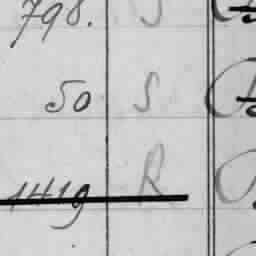 798. S
50 S
1419 R